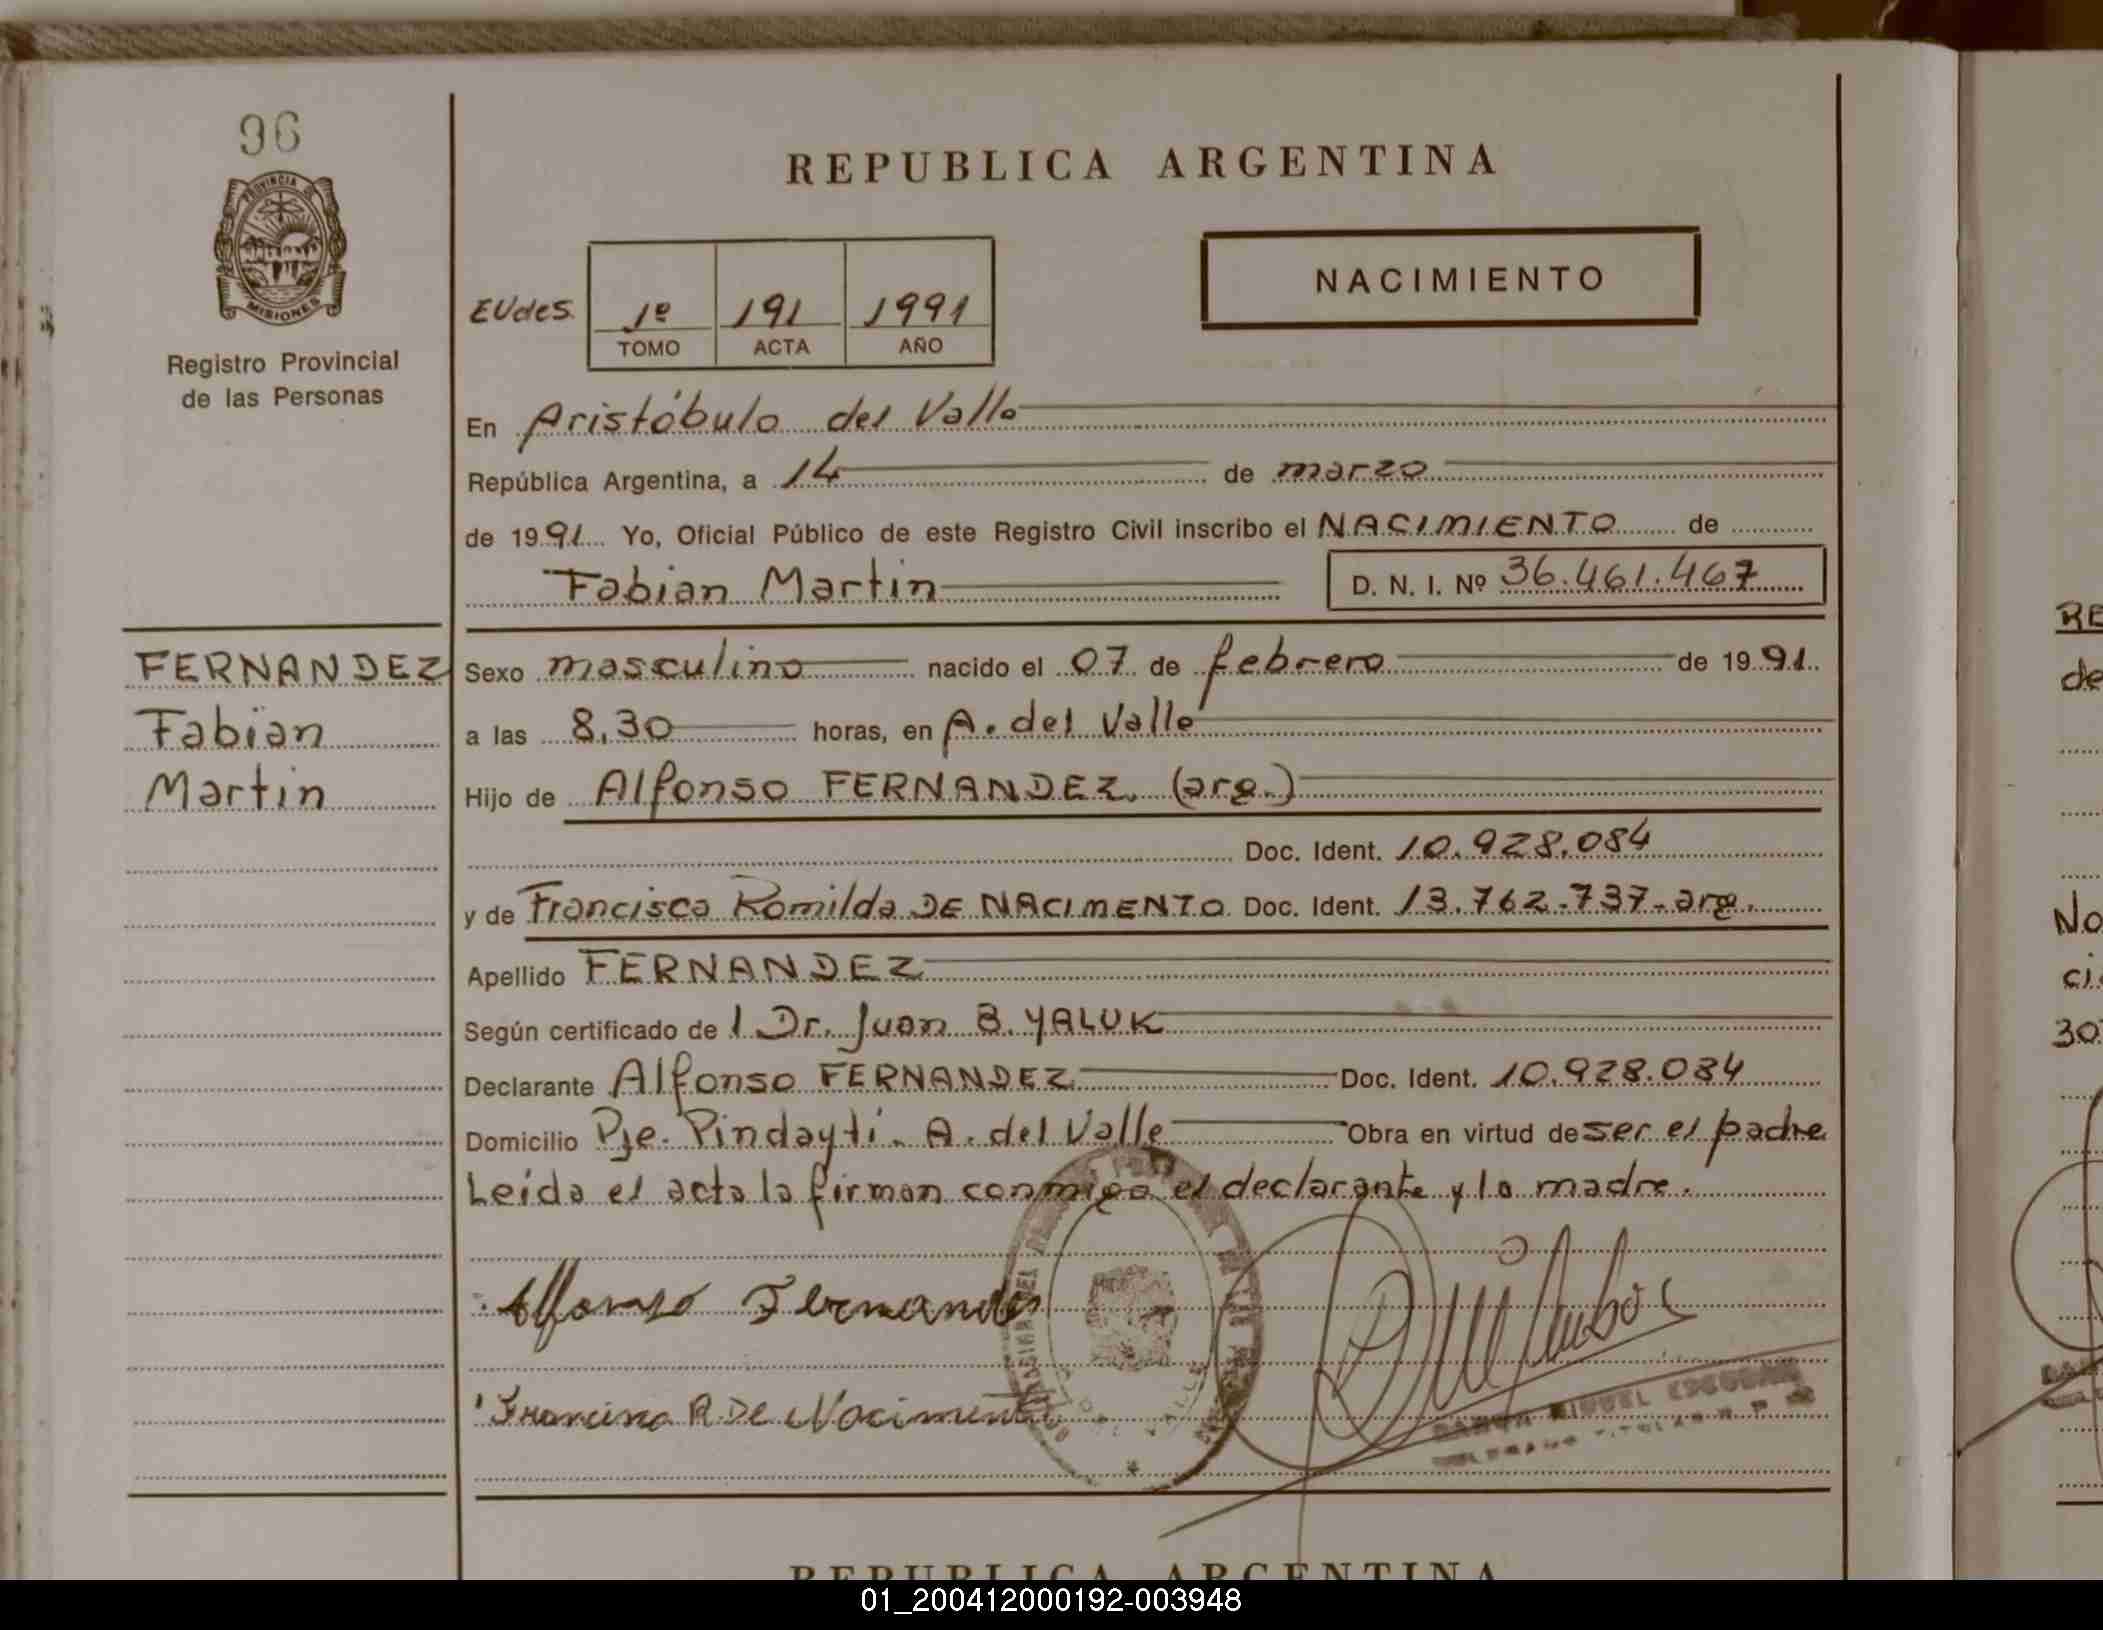 96
PROVINCIA DE
MISIONES
Registro Provincial
de las Personas
REPUBLICA ARGENTINA
NACIMIENTO
EUdes. 1º 191 1991
TOMO ACTA AÑO
En Aristóbulo del Valle
República Argentina, a 14 de marzo
de 1991 Yo, Oficial Público de este Registro Civil inscribo el NACIMIENTO de
Fabian Martin D. N. I. Nº 36.461.467
FERNANDEZ
Fabian
Martin
Sexo masculino nacido el 07 de febrero de 1991
a las 8,30 horas, en A. del Valle
Hijo de Alfonso FERNANDEZ. (arg.)
Doc. Ident. 10.928.084
y de Francisca Romilda DE NACIMENTO Doc. Ident. 13.762.737-arg.
Apellido FERNANDEZ
Según certificado de l Dr. Juan B. YALUK
Declarante Alfonso FERNANDEZ Doc. Ident. 10.928.084
Domicilio Pje. Pindaytí. A. del Valle Obra en virtud de ser el padre
Leída el acta la firman conmigo el declarante y la madre.
Alfonso Fernandes
Francisca R. De Nacimento
RAMON MIGUEL ESCOBAR
REPUBLICA ARGENTINA
RE
de
No
ci
30
01_200412000192-003948